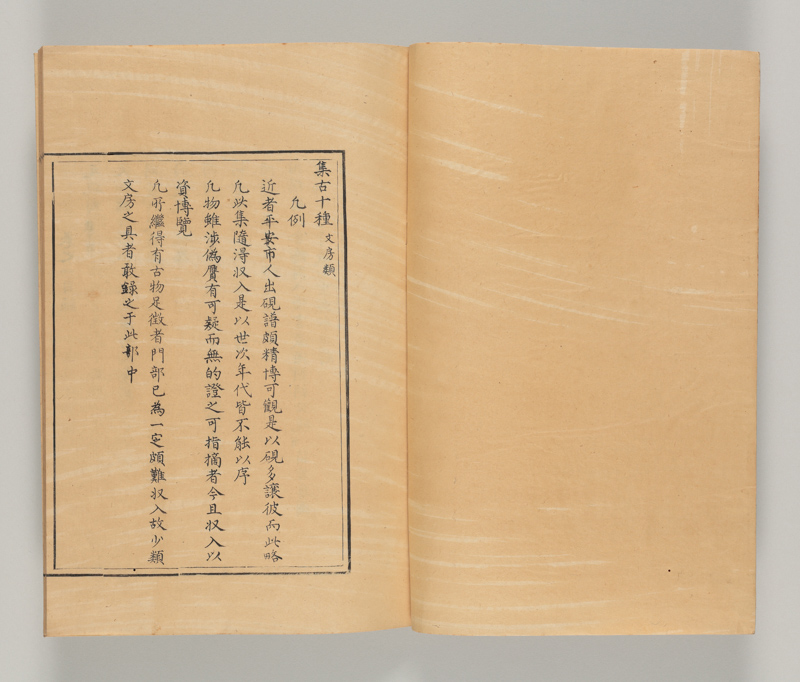 集古十種 文房類
凡例
近者平安市人出硯譜頗精博可觀是以硯多讓彼而此略
凡此集隨得収入是以世次年代皆不能以序
凡物雖涉偽贋有可疑而無的證之可指摘者今且収入以
資博覽
凡所繼得有古物足徵者門部已為一定頗難収入故少類
文房之具者敢錄之于此部中